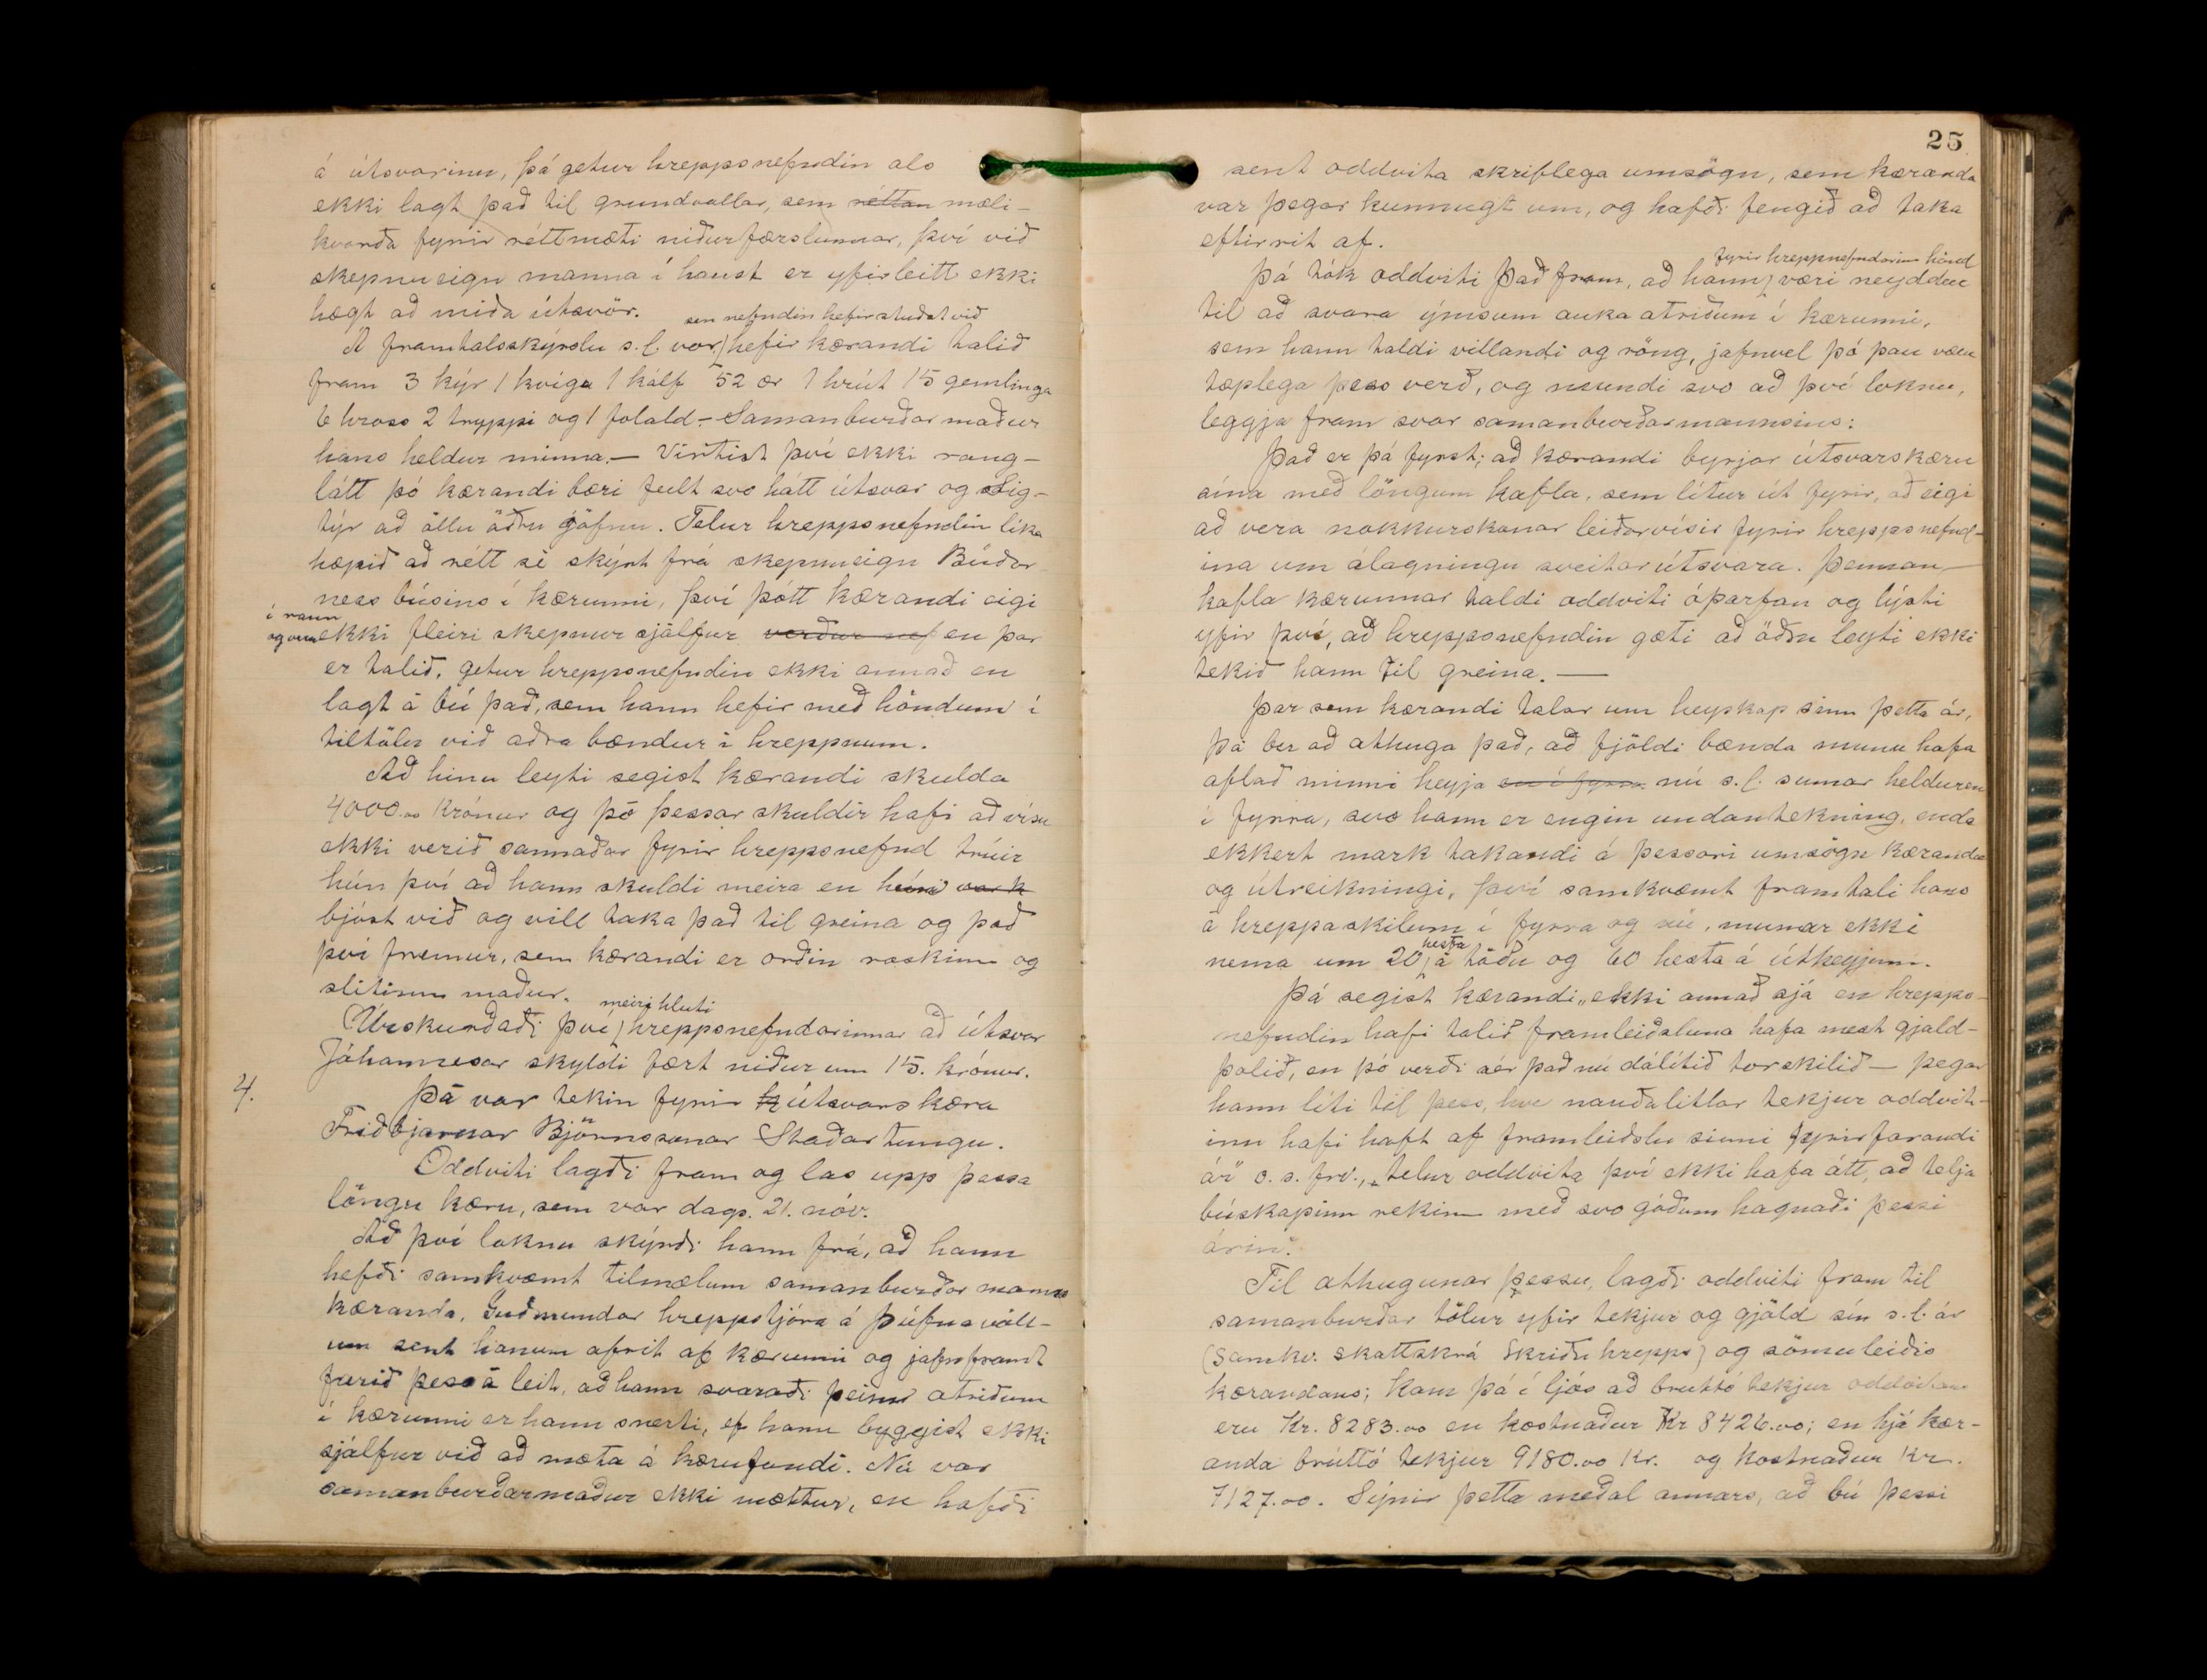 á útsvarinu, þá getur hreppsnefndin als
ekki lagt það til grundvallar, sem réttan mæli-
kvarða fyrir réttmæti niðurfærslunnar, því við
skepnueign manna í haust er yfirleitt ekki
hægt að miða útsvör.
sem nefndin hefir stuðst við
Á framtalsskýrslu s.l. vor hefir kærandi talið
fram 3 kýr 1 kvígu 1 kálf 52 ær 1 hrút 15 gemlinga
6 hross 2 tryppi og 1 folald - Samanburðarmaður
hans heldur minna. - Virtist því ekki rang-
látt þó kærandi bæri fult svo hátt útsvar og Sig-
týr að öllu öðru jöfnu. Telur hreppsnefndin líka
hæpið að rétt sé skýrt frá skepnueign Búðar-
ness búsins í kærunni, því þótt kærandi eigi
í raun
og veru ekki fleiri skepnur sjálfur verður nef en þar
er talið, getur hreppsnefndin ekki annað en
lagt á bú það, sem hann hefir með höndum í
tiltölu við aðra bændur í hreppnum.
Að hinu leyti segist kærandi skulda
4000.00 krónur og þó þessar skuldir hafi að vísu
ekki verið sannaðar fyrir hreppsnefnd trúir
hún því að hann skuldi meira en hún var k
bjóst við og vill taka það til greina og það
því fremur, sem kærandi er orðin roskinn og
slitinn maður.
meiri hluti
Úrskurðaði því hreppsnefndarinnar að útsvar
Jóhannesar skyldi fært niður um 15. krónur.
4. Þá var tekin fyrir k útsvars kæra
Friðbjarnar Björnssonar Staðartungu.
Oddviti lagði fram og las upp þessa
löngu kæru, sem var dags. 21. nóv.
Að því loknu skýrði hann frá, að hann
hefði samkvæmt tilmælum samanburðar manns
kæranda, Guðmundar hreppstjóra á Þúfnavöll-
um sent honum afrit af kærunni og jafnframt
farið þess á leit, að hann svaraði þeim atriðum
í kærunni er hann snerti, ef hann byggist ekki
sjálfur við að mæta á kærufundi. Nú var
samanburðarmaður ekki mættur, en hafði
25
sent oddvita skriflega umsögn, sem kæranda
var þegar kunnugt um, og hafði fengið að taka
eftirrit af.
fyrir hreppnefndarinnar hönd
Þá tók oddviti það fram, að hann væri neyddur
til að svara ýmsum auka atriðum í kærunni,
sem hann taldi villandi og röng, jafnvel þó þau væru
tæplega þess verð, og mundi svo að því loknu,
leggja fram svar samanburðarmannsins:
Það er þá fyrst; að kærandi byrjar útsvarskæru
sína með löngum kafla, sem lítur út fyrir, að eigi
að vera nokkurskonar leiðarvísir fyrir hreppsnefnd-
ina um álagningu sveitarútsvara. Þennan
kafla kærunnar taldi oddviti óþarfan og lýsti
yfir því, að hreppsnefndin gæti að öðru leyti ekki
tekið hann til greina. -
Þar sem kærandi talar um heyskap sinn þetta ár,
þá ber að athuga það, að fjöldi bænda munu hafa
aflað minni heyja en í fyrra nú s.l. sumar heldur en
í fyrra, svo hann er engin undantekning, enda
ekkert mark takandi á þessari umsögn kæranda
og útreikningi, því samkvæmt framtali hans
á hreppaskilum í fyrra og nú, munar ekki
hesta
nema um 20 á töðu og 60 hesta á útheyjum.
Þá segist kærandi „ekki annað sjá en hrepps-
nefndin hafi talið framleiðsluna hafa mest gjald-
þolið, en þó verði sér það nú dálítið torskilið - þegar
hann líti til þess, hve nauðalitlar tekjur oddvit-
inn hafi haft af framleiðslu sinni fyrirfarandi
ár" o.s.frv., „telur oddvita því ekki hafa átt, að telja
búskapinn rekinn með svo góðum hagnaði þessi
árin".
Til athugunar þessu, lagði oddviti fram til
samanburðar tölur yfir tekjur og gjöld sín s.l. ár
(samkv. skattskrá Skriðuhrepps) og sömuleiðis
kærandans; kom þá í ljós að bruttó tekjur oddvitans
eru Kr. 8283.00 en kostnaður Kr 8426.00; en hjá kær-
anda brúttó tekjur 9180.00 Kr. og kostnaður Kr.
7127.00. Sýnir þetta meðal annars, að bú þessi